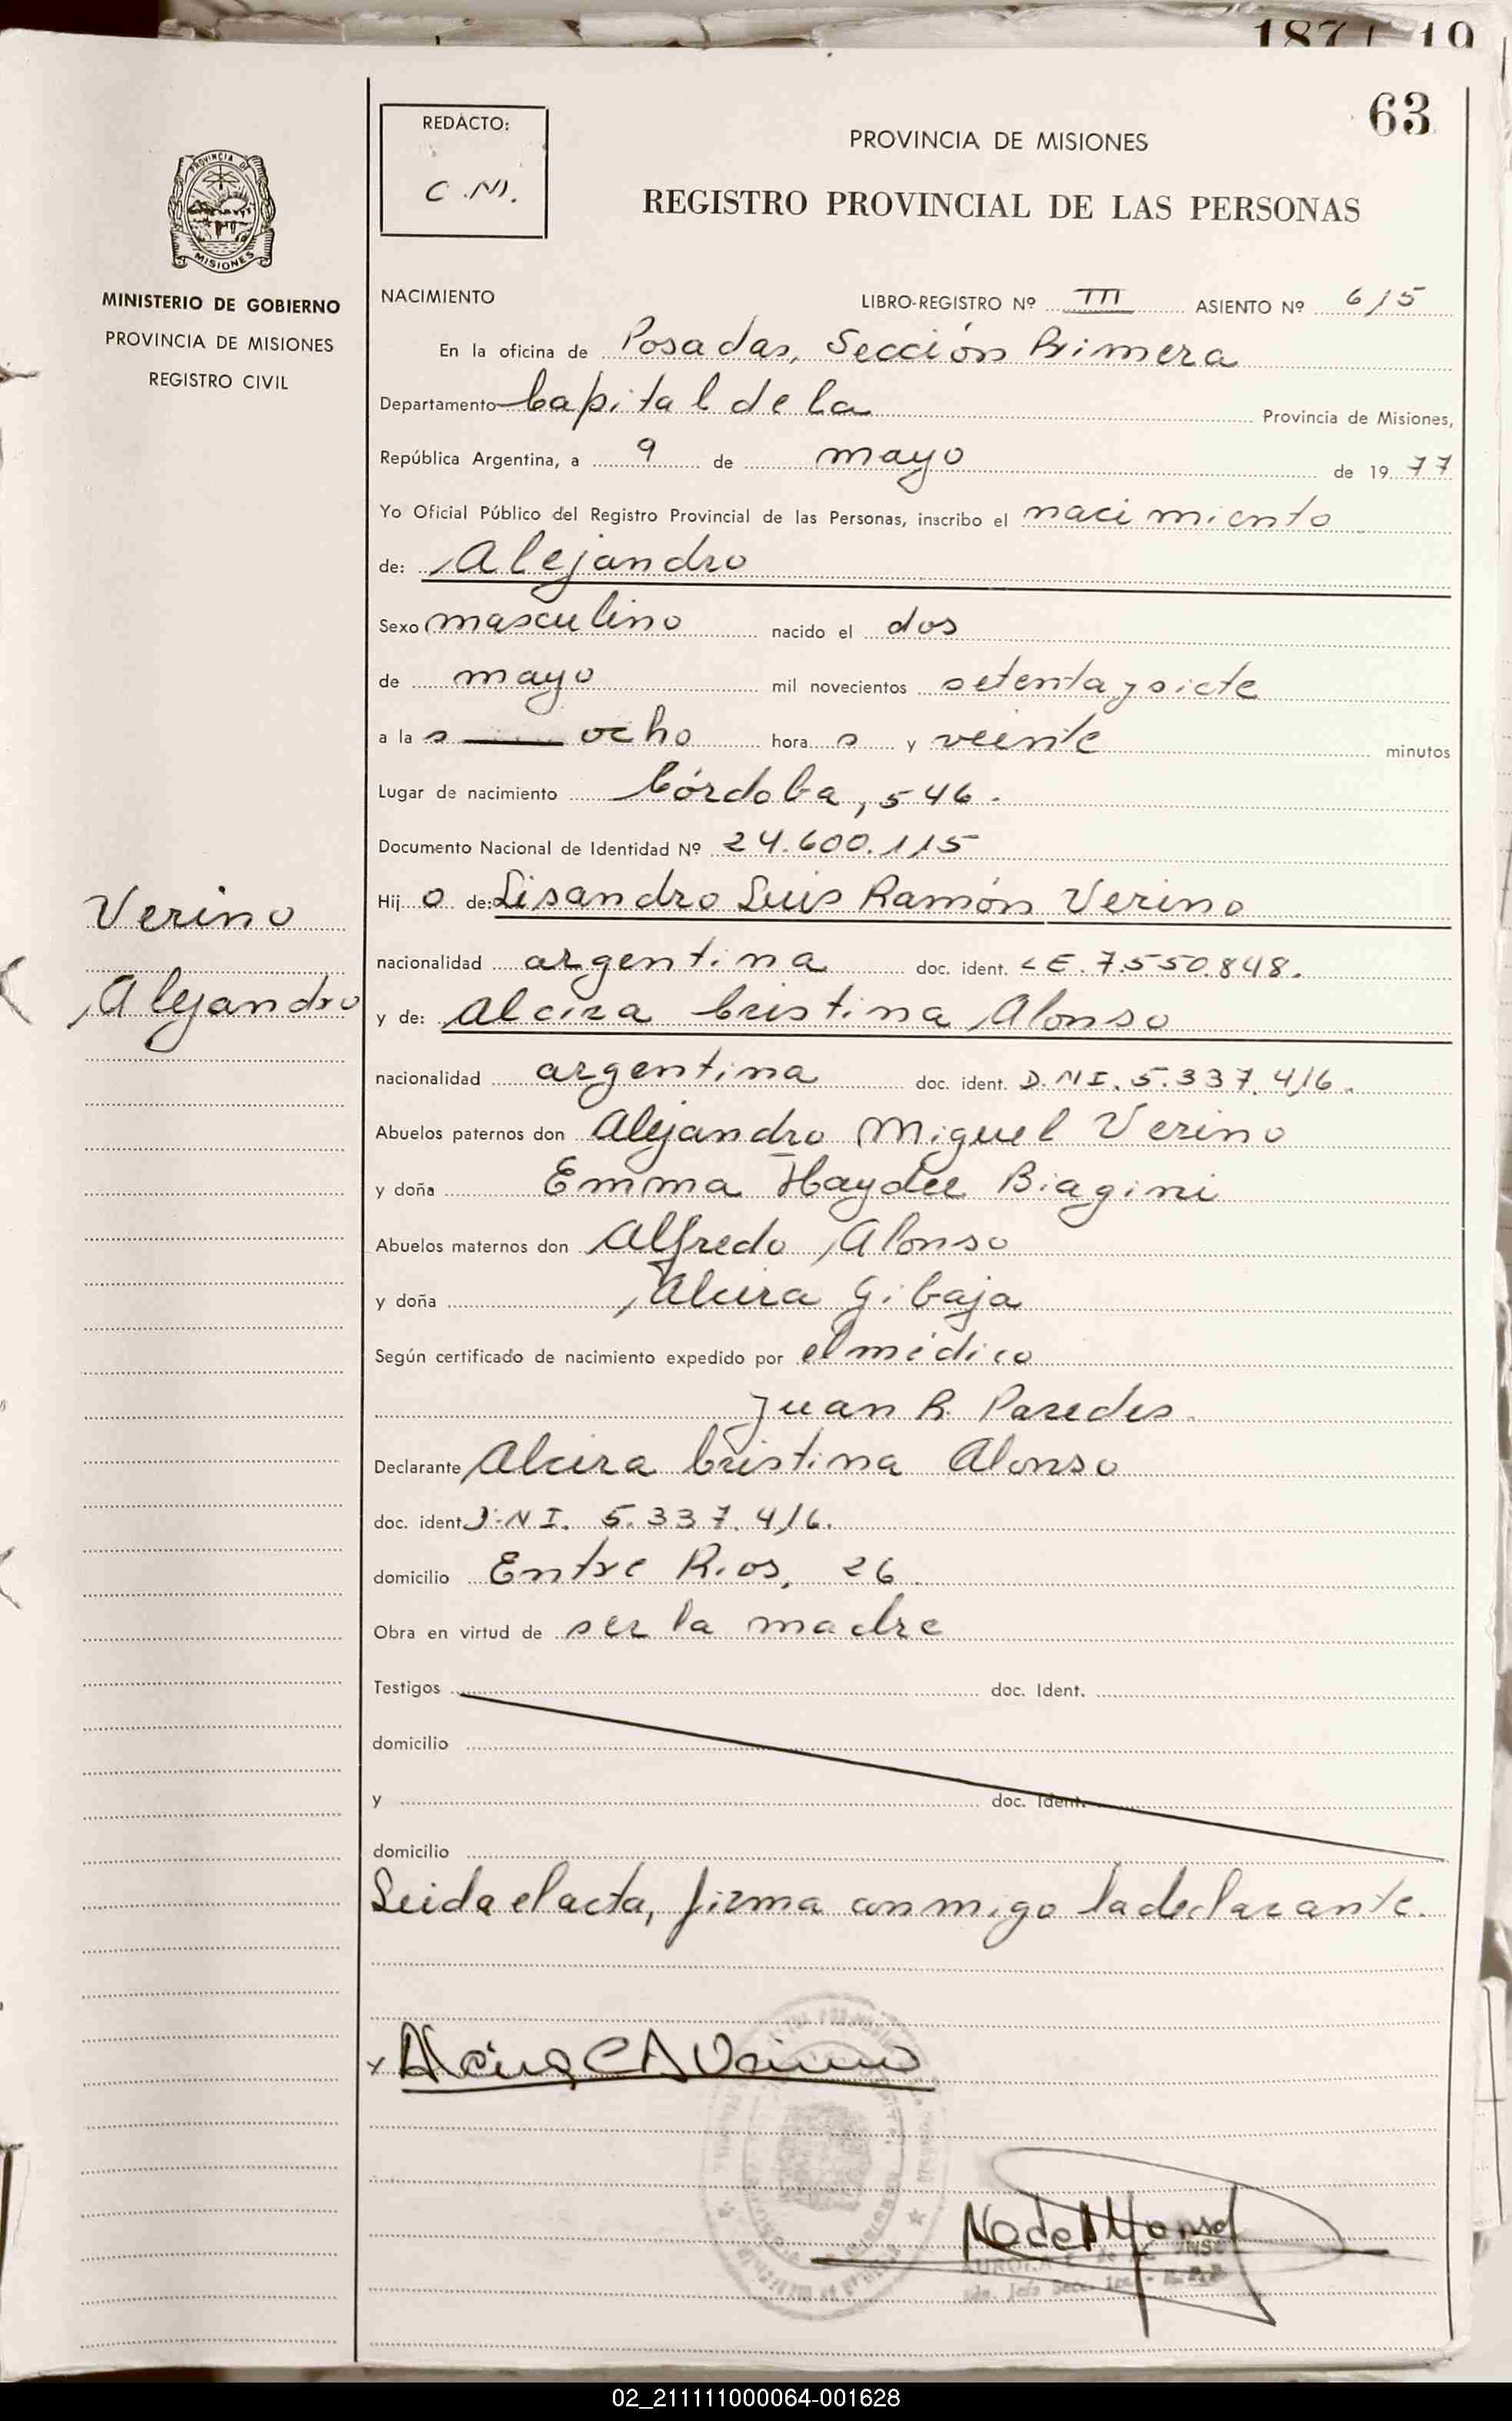 187 10
63
REDACTO:
C.N.
PROVINCIA DE MISIONES
REGISTRO PROVINCIAL DE LAS PERSONAS
PROVINCIA DE
MISIONES
MINISTERIO DE GOBIERNO
PROVINCIA DE MISIONES
REGISTRO CIVIL
NACIMIENTO LIBRO-REGISTRO Nº III ASIENTO Nº 615
En la oficina de Posadas, Sección Primera
Departamento Capital de la Provincia de Misiones,
República Argentina, a 9 de mayo de 1977
Yo Oficial Público del Registro Provincial de las Personas, inscribo el nacimiento
de: Alejandro
Sexo masculino nacido el dos
de mayo mil novecientos setenta y siete
a la s ocho hora s y veinte minutos
Lugar de nacimiento Córdoba, 546.
Documento Nacional de Identidad Nº 24.600.115
Verino
Alejandro
Hij o de: Lisandro Luis Ramón Verino
nacionalidad argentina doc. ident. LE. 7.550.848.
y de: Alcira Cristina Alonso
nacionalidad argentina doc. ident. D.NI. 5.337.416.
Abuelos paternos don Alejandro Miguel Verino
y doña Emma Haydée Biagini
Abuelos maternos don Alfredo Alonso
y doña Alcira Gibaja
Según certificado de nacimiento expedido por el médico
Juan R. Paredes.
Declarante Alcira Cristina Alonso
doc. ident D.N I. 5.337.416.
domicilio Entre Rios, 26.
Obra en virtud de ser la madre
Testigos doc. Ident.
domicilio
y doc. Ident.
domicilio
Leida el acta, firma conmigo la declarante.
x Alcira C A Verino
02_211111000064-001628